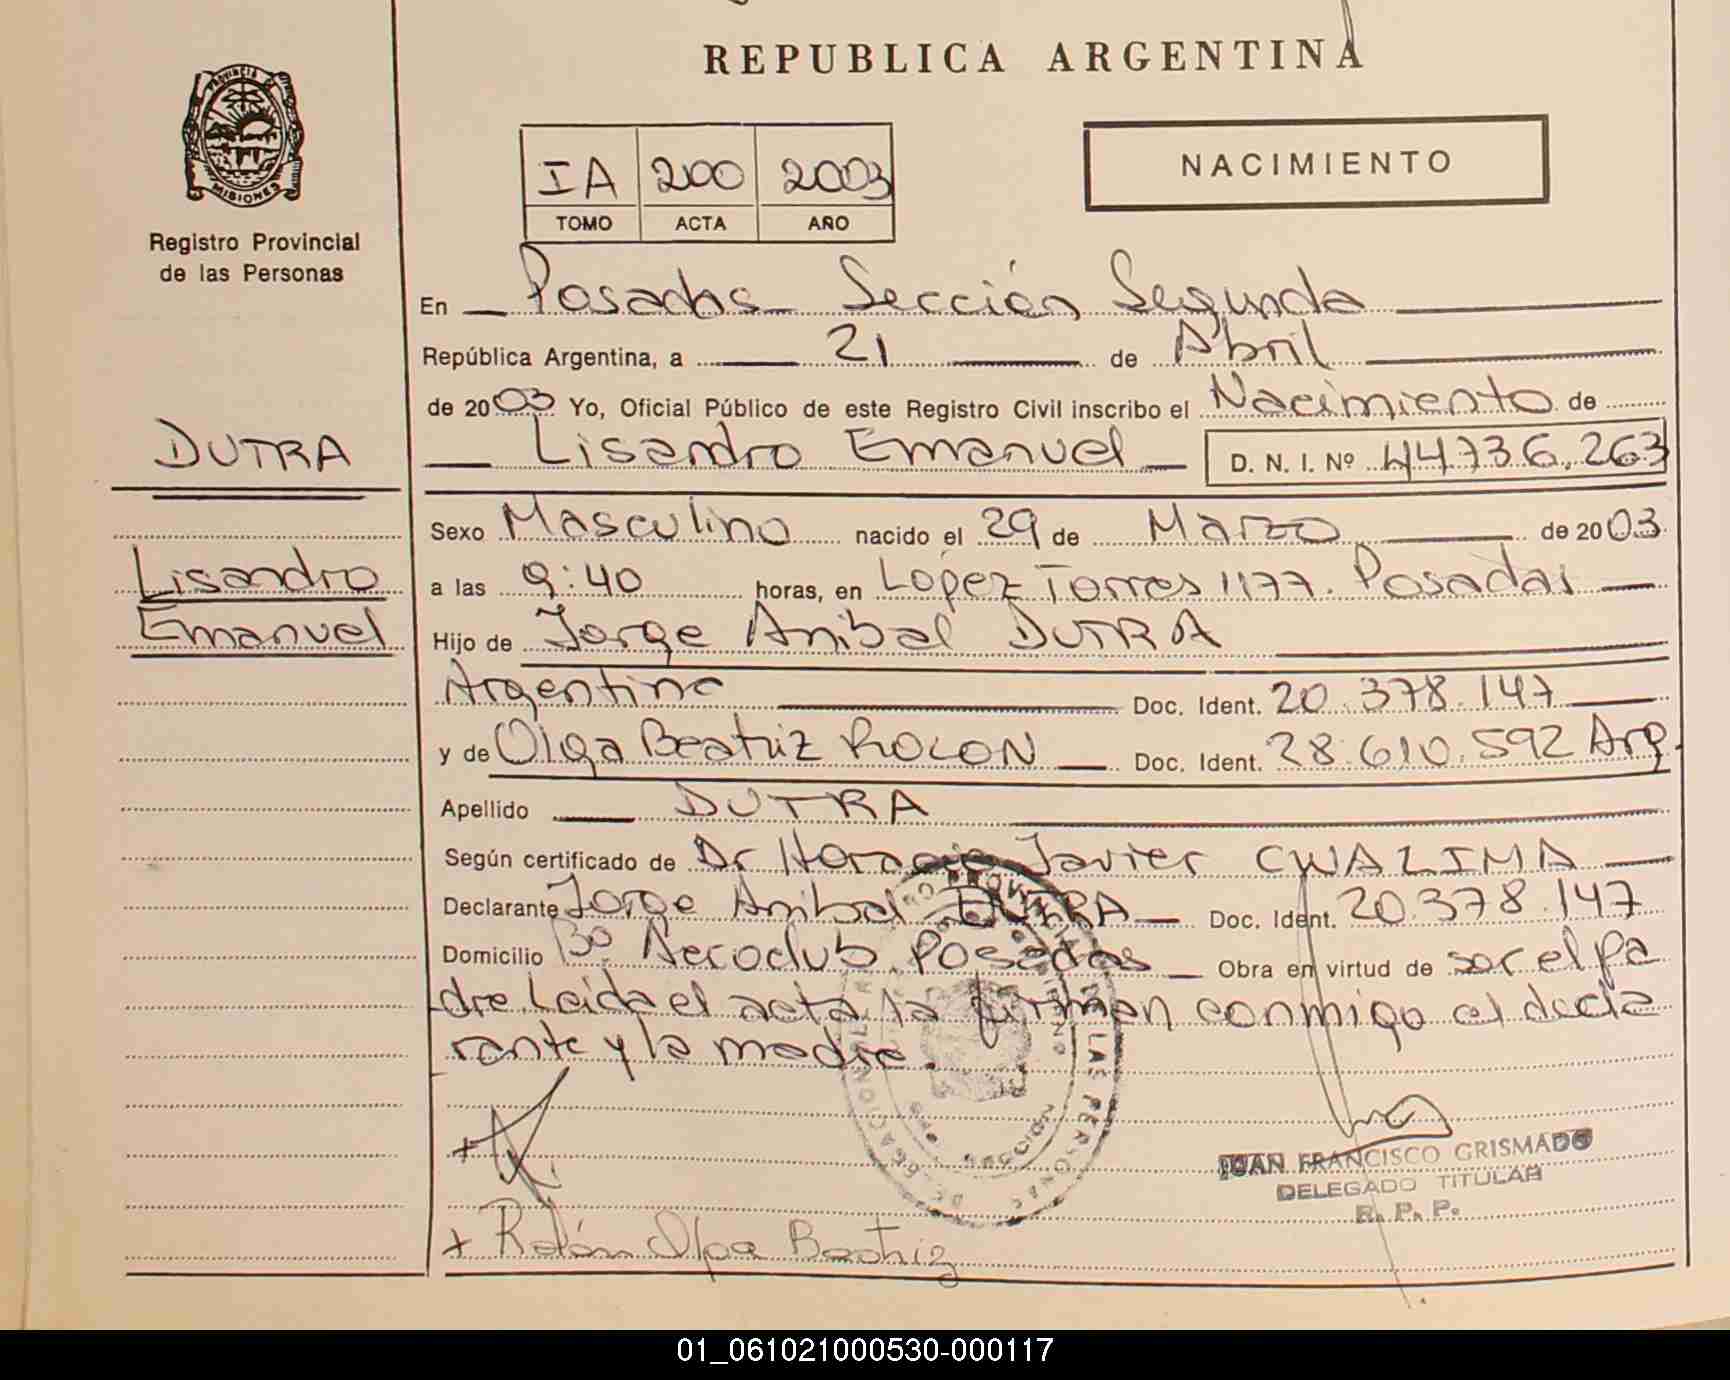 REPUBLICA ARGENTINA
PROVINCIA DE
MISIONES
Registro Provincial
de las Personas
IA 200 2003
TOMO ACTA AÑO
NACIMIENTO
En Posadas Sección Segunda
República Argentina, a 21 de Abril
de 2003 Yo, Oficial Público de este Registro Civil inscribo el Nacimiento de
DUTRA
Lisandro Emanuel D. N. I. Nº 44736.263
Sexo Masculino nacido el 29 de Marzo de 2003
Lisandro
a las 9:40 horas, en Lopez Torres 1177. Posadas
Emanuel
Hijo de Jorge Anibal DUTRA
Argentino Doc. Ident. 20.378.147
y de Olga Beatriz ROLON Doc. Ident. 28.610.592 Arg.
Apellido DUTRA
Según certificado de Dr Horacio Javier CWALINA
Declarante Jorge Anibal DUTRA Doc. Ident. 20.378.147
Domicilio Bº Aeroclub. Posadas Obra en virtud de ser el pa
dre. Leida el acta la firman conmigo el decla
rante y la madre.
LAS PERSONAS
JUAN FRANCISCO GRISMADO
DELEGADO TITULAR
R. P. P.
+ Rolón Olga Beatriz
01_061021000530-000117